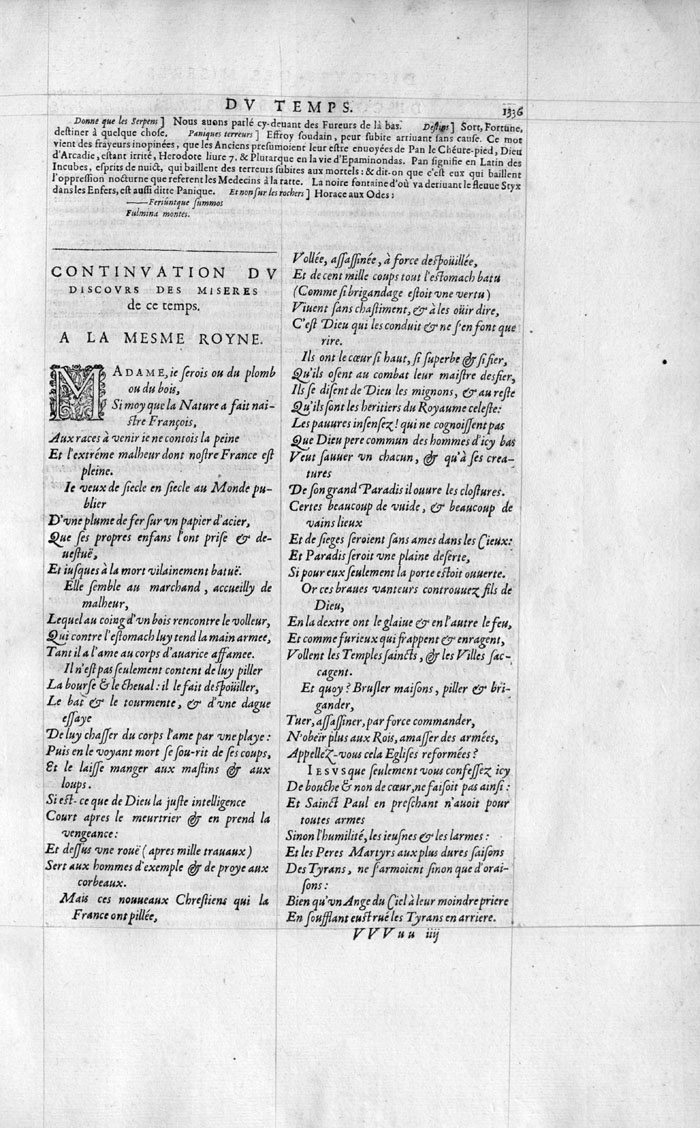 DV TEMPS.
1336
Donne que les Serpens] Nous auons parlé cy-deuant des Fureurs de là bas. Destins] Sort, Fortune,
destiner à quelque chose. Paniques terreurs] Effroy soudain, peur subite arriuant sans cause. Ce mot
vient des frayeurs inopinées, que les Anciens presumoient leur estre enuoyées de Pan le Chéure-pied, Dieu
d'Arcadie, estant irrité, Herodote liure 7. & Plutarque en la vie d'Epaminondas. Pan signifie en Latin des
Incubes, esprits de nuict, qui baillent des terreurs subites aux mortels: & dit-on que c'est eux qui baillent
l'oppression nocturne que referent les Medecins à la ratte. La noire fontaine d'où va deriuant le fleuue Styx
dans les Enfers, est aussi ditte Panique. Et non sur les rochers] Horace aux Odes:
——Feriuntque summos
Fulmina montes.
CONTINVATION DV
DISCOVRS DES MISERES
de ce temps.
A LA MESME ROYNE.
MADAME, ie serois ou du plomb
ou du bois,
Si moy que la Nature a fait nai-
stre François,
Aux races à venir ie ne contois la peine
Et l'extréme malheur dont nostre France est
pleine.
Ie veux de siecle en siecle au Monde pu-
blier
D'vne plume de fer sur vn papier d'acier,
Que ses propres enfans l'ont prise & de-
uestuë,
Et iusques à la mort vilainement batuë.
Elle semble au marchand, accueilly de
malheur,
Lequel au coing d'vn bois rencontre le volleur,
Qui contre l'estomach luy tend la main armee,
Tant il a l'ame au corps d'auarice affamee.
Il n'est pas seulement content de luy piller
La bourse & le cheual: il le fait despoüiller,
Le bat & le tourmente, & d'vne dague
essaye
De luy chasser du corps l'ame par vne playe:
Puis en le voyant mort se sou-rit de ses coups,
Et le laisse manger aux mastins & aux
loups.
Si est-ce que de Dieu la juste intelligence
Court apres le meurtrier & en prend la
vengeance:
Et dessus vne rouë (apres mille trauaux)
Sert aux hommes d'exemple & de proye aux
corbeaux.
Mais ces nouueaux Chrestiens qui la
France ont pillée,
Vollée, assassinée, à force despoüillée,
Et de cent mille coups tout l'estomach batu
(Comme si brigandage estoit vne vertu)
Viuent sans chastiment, & à les oüir dire,
C'est Dieu qui les conduit & ne s'en font que
rire.
Ils ont le cœur si haut, si superbe & si fier,
Qu'ils osent au combat leur maistre desfier,
Ils se disent de Dieu les mignons, & au reste
Qu'ils sont les heritiers du Royaume celeste:
Les pauures insensez! qui ne cognoissent pas
Que Dieu pere commun des hommes d'icy bas
Veut sauuer vn chacun, & qu'à ses crea-
tures
De son grand Paradis il ouure les clostures.
Certes beaucoup de vuide, & beaucoup de
vains lieux
Et de sieges seroient sans ames dans les Cieux:
Et Paradis seroit vne plaine deserte,
Si pour eux seulement la porte estoit ouuerte.
Or ces braues vanteurs controuuez fils de
Dieu,
En la dextre ont le glaiue & en l'autre le feu,
Et comme furieux qui frappent & enragent,
Vollent les Temples saincts, & les Villes sac-
cagent.
Et quoy? Brusler maisons, piller & bri-
gander,
Tuer, assassiner, par force commander,
N'obeïr plus aux Rois, amasser des armées,
Appellez-vous cela Eglises reformées?
IESVS que seulement vous confessez icy
De bouche & non de cœur, ne faisoit pas ainsi:
Et Sainct Paul en preschant n'auoit pour
toutes armes
Sinon l'humilité, les ieusnes & les larmes:
Et les Peres Martyrs aux plus dures saisons
Des Tyrans, ne s'armoient sinon que d'orai-
sons:
Bien qu'vn Ange du Ciel à leur moindre priere
En soufflant eust rué les Tyrans en arriere.
VVVuu iiij